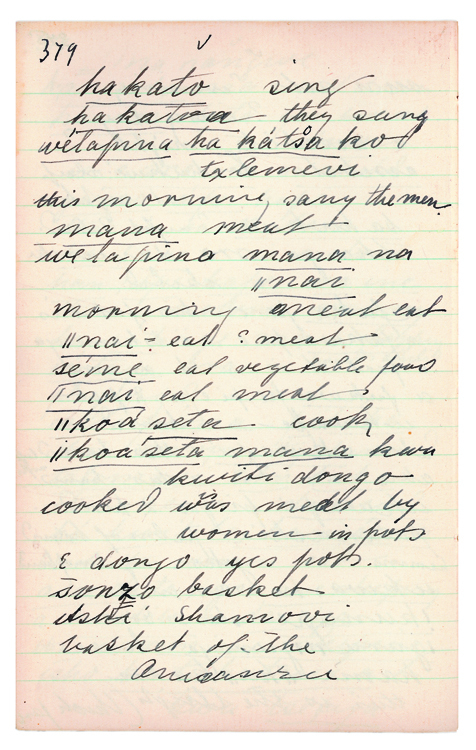 379
hakato sing
hakatoa they sang
wétapina ha kátsa ko
txlemevi
this morning sang the men.
mana meat
wetapina mana na
ǁnai
morning meat eat
ǁnai - eat ? meat
séme eat vegetable food
ǁnai eat meat
ǁkoa seta cook
ǁkoa seta mana kwa
kwiti dongo
cooked was meat by
women in pots
& dongo yes pots.
šonzo basket
Shamovi
basket of the